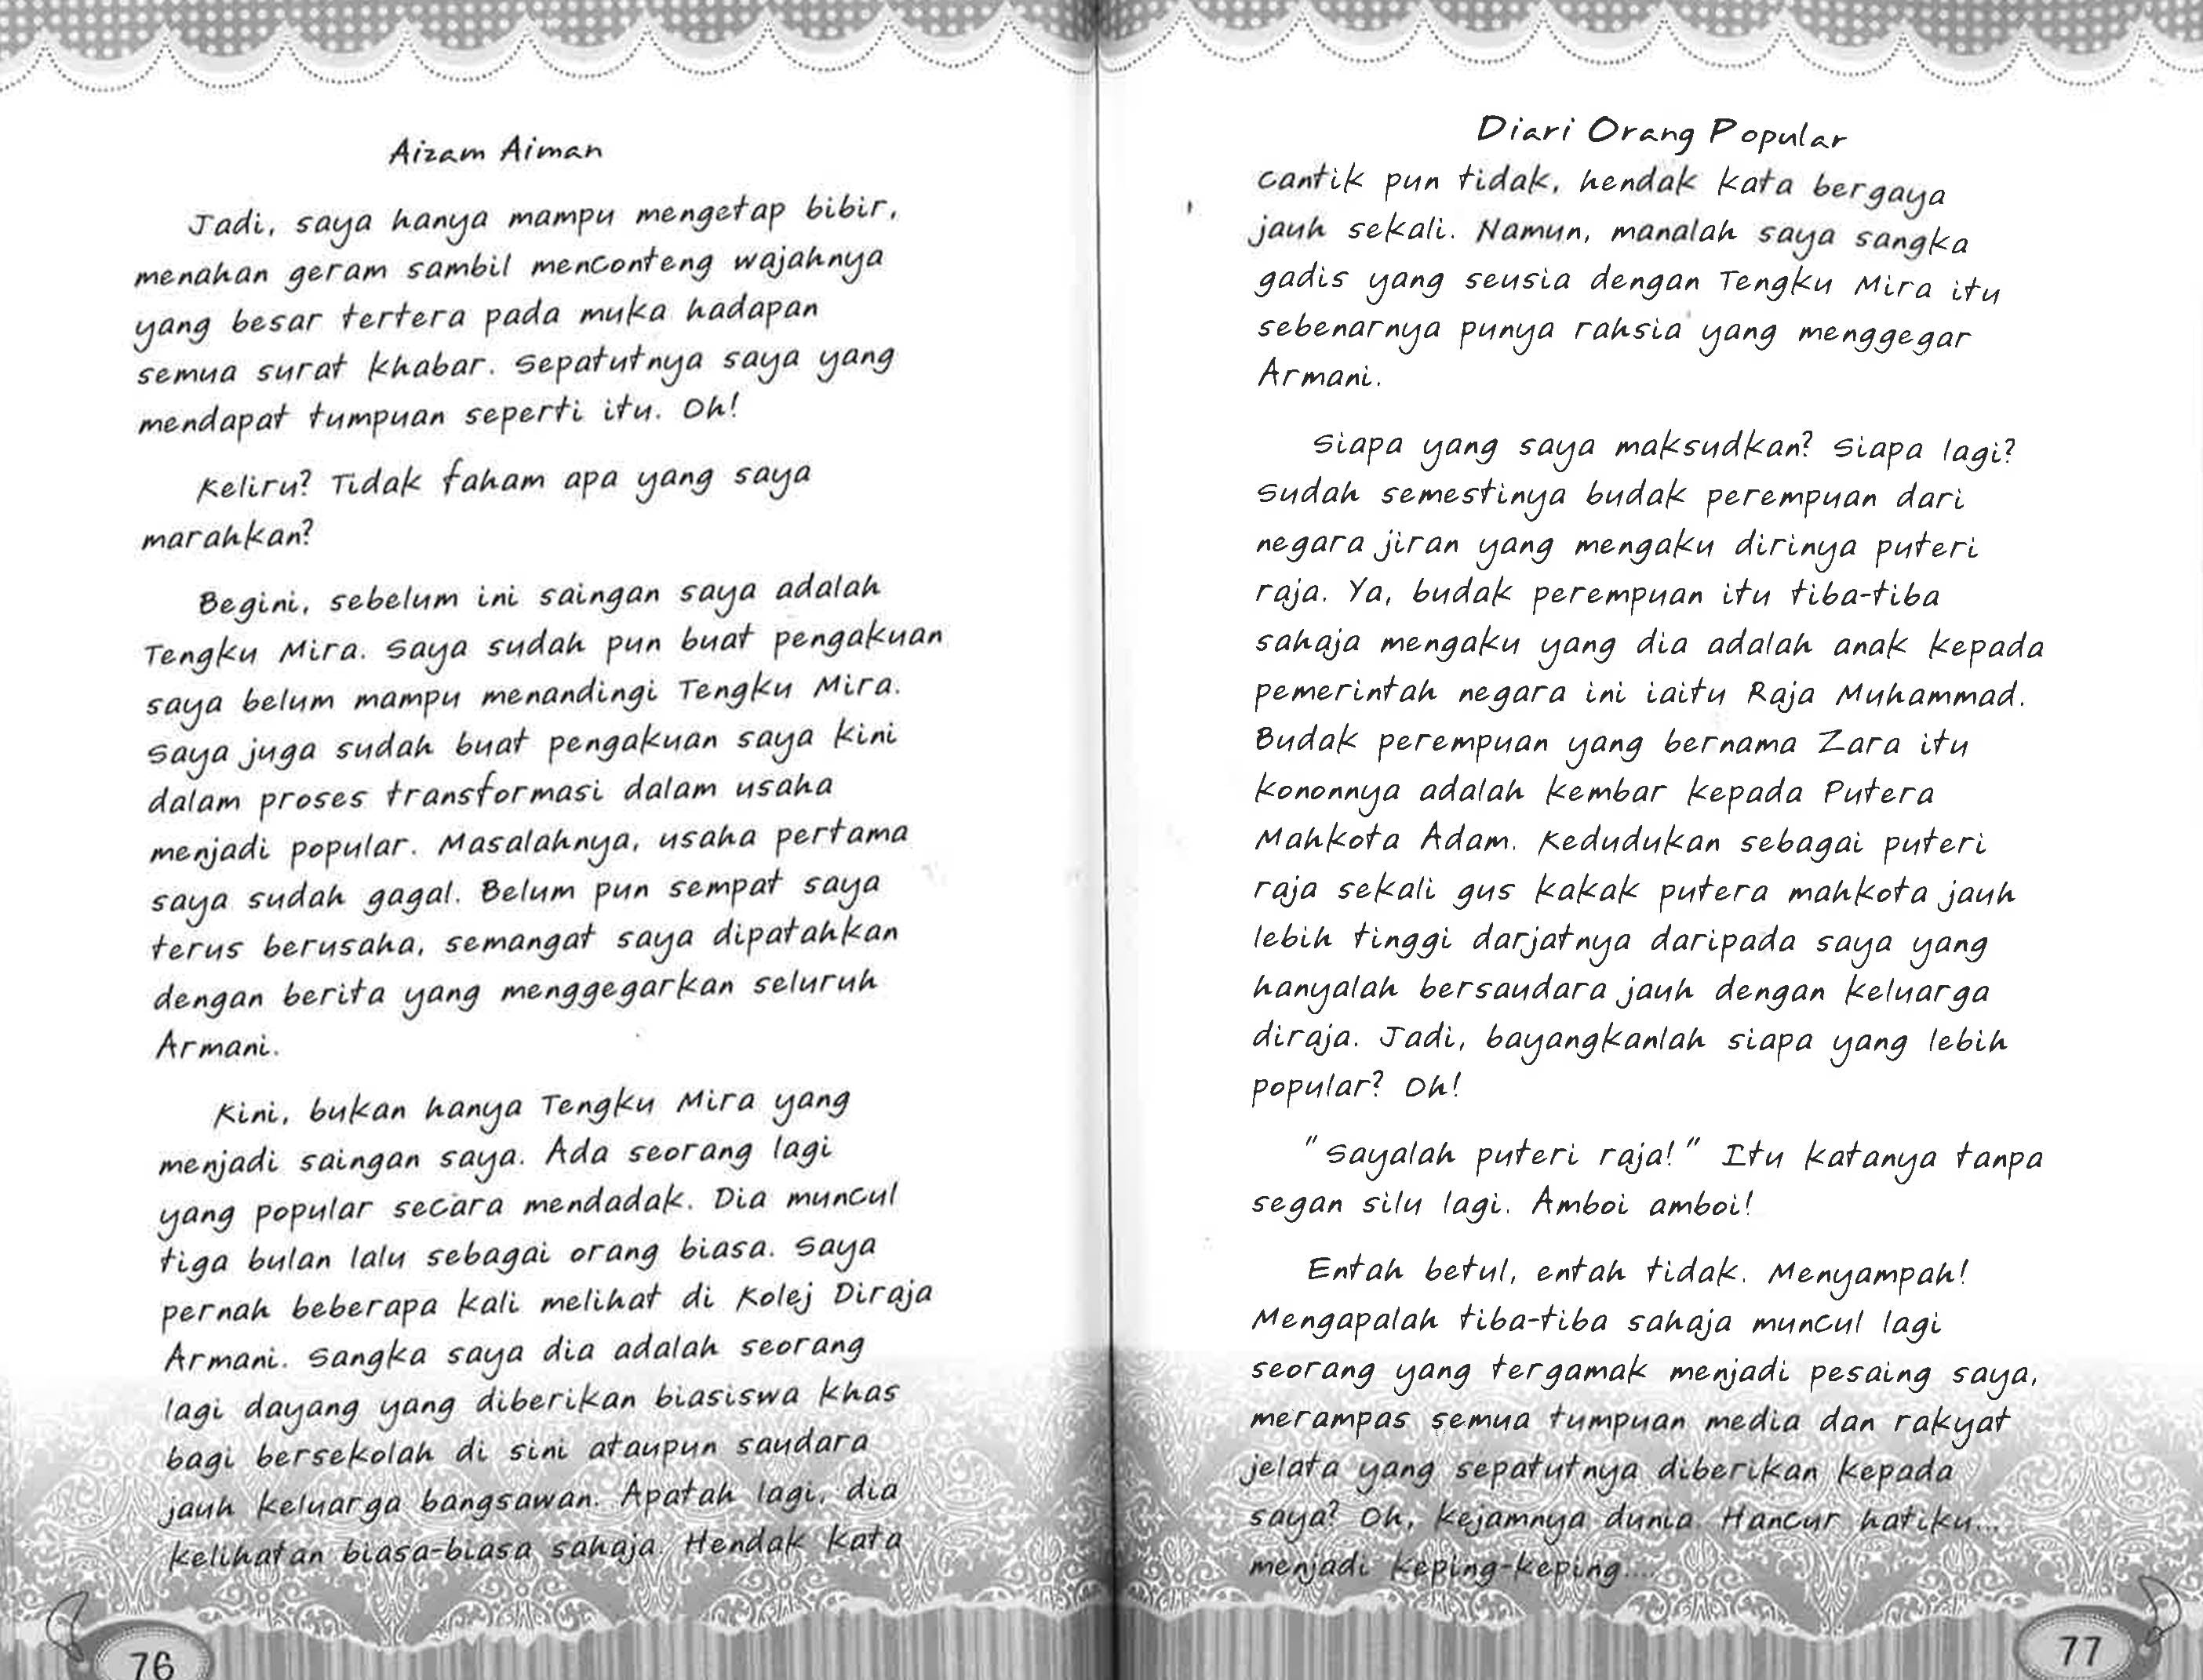 Aizam Aiman
Jadi, saya hanya mampu mengetap bibir,
menahan geram sambil menconteng wajahnya
yang besar tertera pada muka hadapan
semua surat khabar. Sepatutnya saya yang
mendapat tumpuan seperti itu. Oh!
Keliru? Tidak faham apa yang saya
marahkan?
Begini, sebelum ini saingan saya adalah
Tengku Mira. Saya sudah pun buat pengakuan
saya belum mampu menandingi Tengku Mira.
Saya juga sudah buat pengakuan saya kini
dalam proses transformasi dalam usaha
menjadi popular. Masalahnya, usaha pertama
saya sudah gagal. Belum pun sempat saya
terus berusaha, semangat saya dipatahkan
dengan berita yang menggegarkan seluruh
Armani.
Kini, bukan hanya Tengku Mira yang
menjadi saingan saya. Ada seorang lagi
yang popular secara mendadak. Dia muncul
tiga bulan lalu sebagai orang biasa. Saya
pernah beberapa kali melihat di Kolej Diraja
Armani. Sangka saya dia adalah seorang
lagi dayang yang diberikan biasiswa khas
bagi bersekolah di sini ataupun saudara
jauh keluarga bangsawan. Apatah lagi, dia
kelihatan biasa-biasa sahaja. Hendak kata
76
Diari Orang Popular
cantik pun tidak, hendak kata bergaya
jauh sekali. Namun, manalah saya sangka
gadis yang seusia dengan Tengku Mira itu
sebenarnya punya rahsia yang menggegar
Armani.
Siapa yang saya maksudkan? Siapa lagi?
Sudah semestinya budak perempuan dari
negara jiran yang mengaku dirinya puteri
raja. Ya, budak perempuan itu tiba-tiba
sahaja mengaku yang dia adalah anak kepada
pemerintah negara ini iaitu Raja Muhammad.
Budak perempuan yang bernama Zara itu
kononnya adalah kembar kepada Putera
Mahkota Adam. Kedudukan sebagai puteri
raja sekali gus kakak putera mahkota jauh
lebih tinggi darjatnya daripada saya yang
hanyalah bersaudara jauh dengan keluarga
diraja. Jadi, bayangkanlah siapa yang lebih
popular? Oh!
"Sayalah puteri raja!" Itu katanya tanpa
segan silu lagi. Amboi amboi!
Entah betul, entah tidak. Menyampah!
Mengapalah tiba-tiba sahaja muncul lagi
seorang yang tergamak menjadi pesaing saya,
merampas semua tumpuan media dan rakyat
jelata yang sepatutnya diberikan kepada
saya? Oh, kejamnya dunia. Hancur hatiku...
menjadi keping-keping....
77